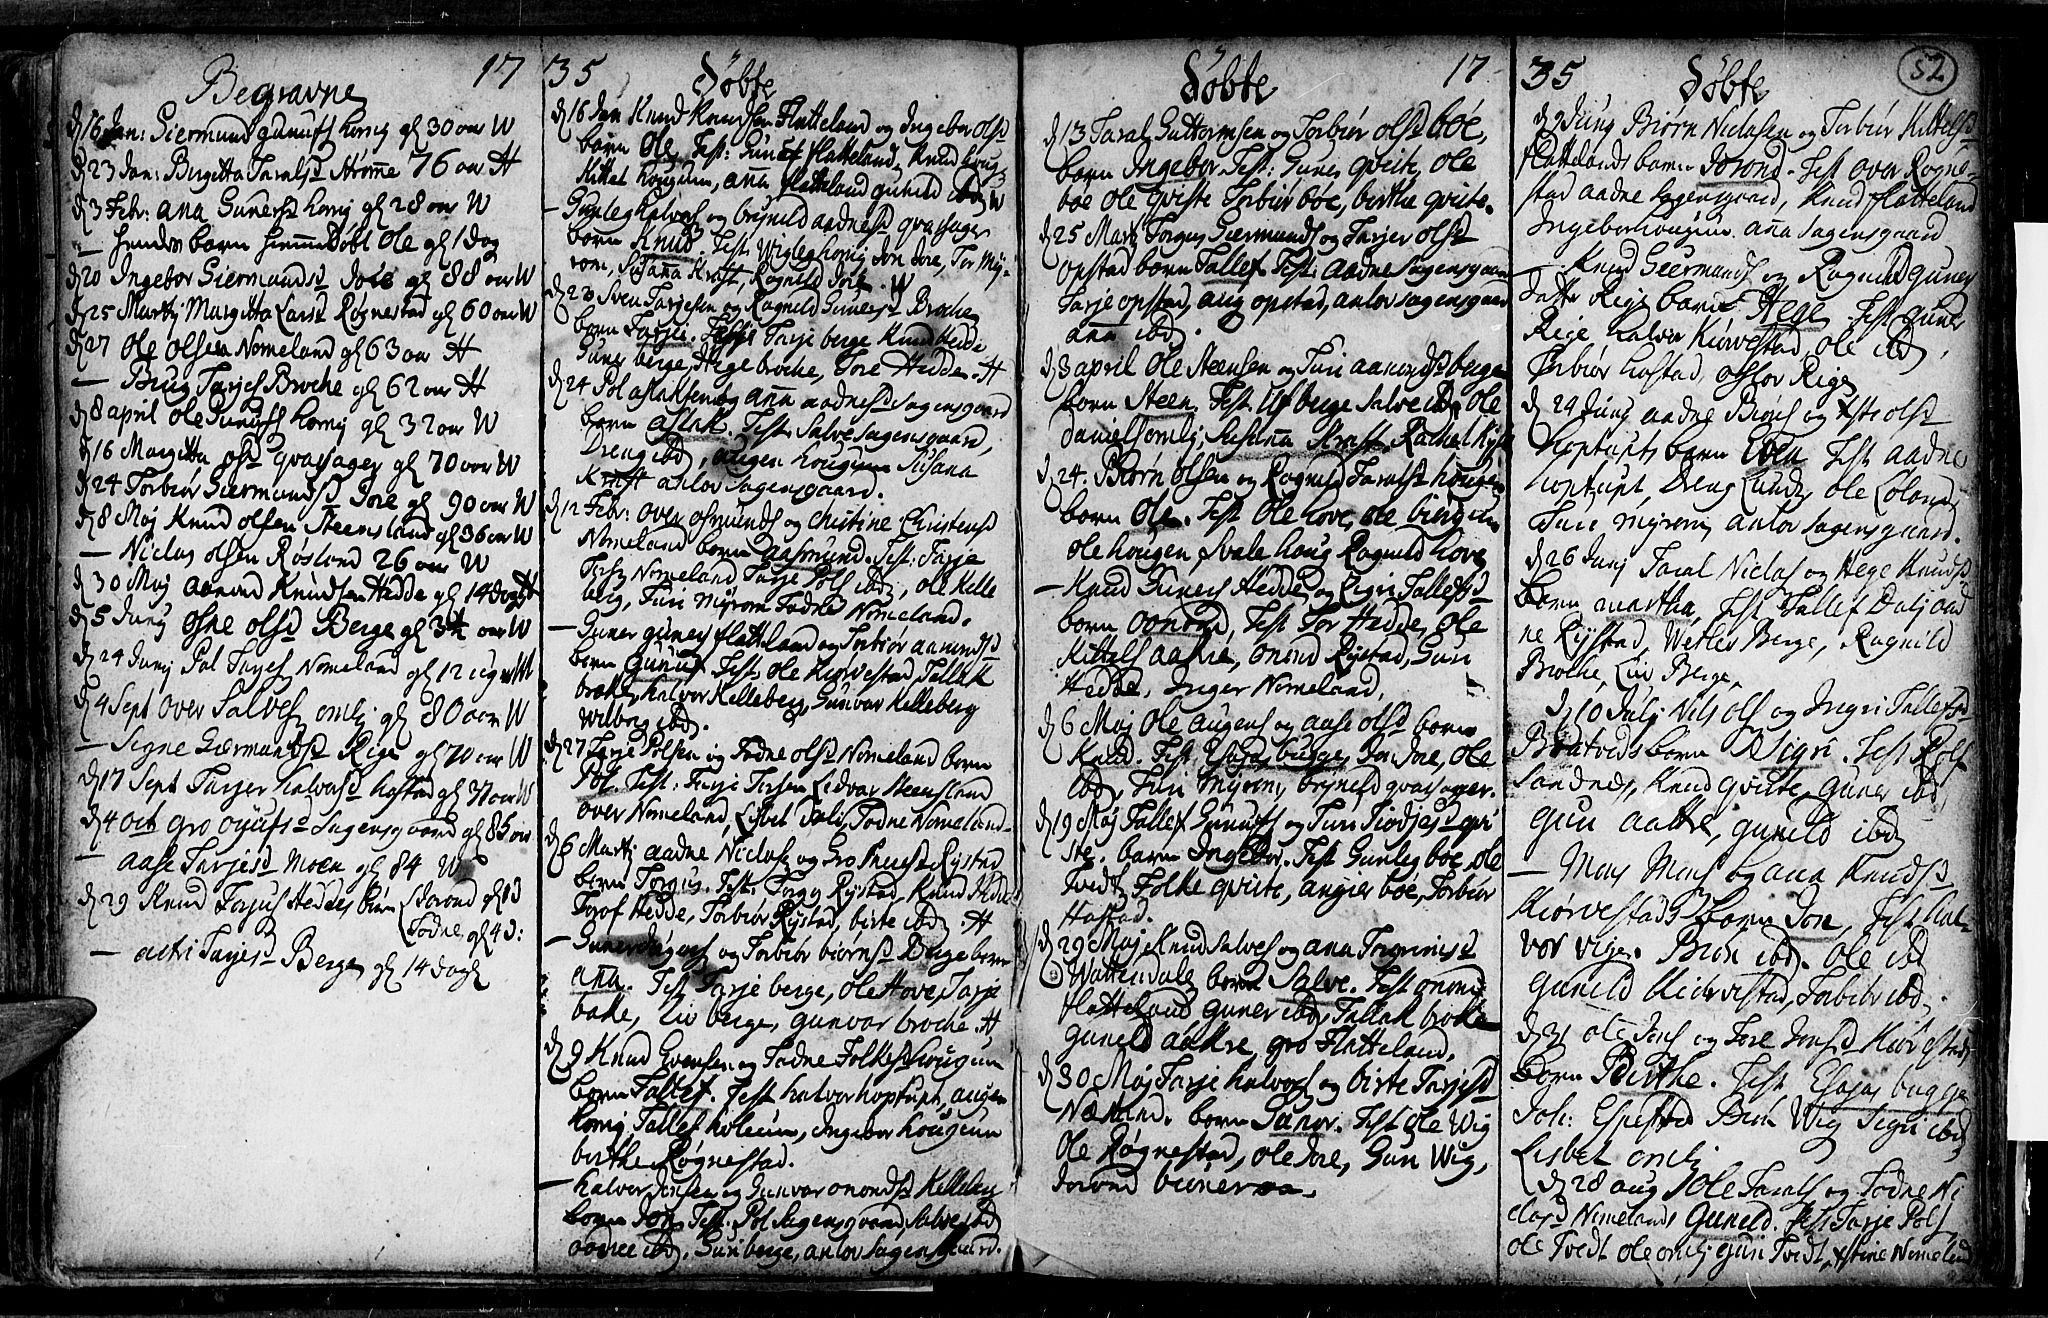 Begravne 17
d 16 Jan: Giermund gunufs homj gl 30 aar W
d 23 Jan: Birgitta Taralsd Strømme 76 aar H
d 3 Febr: ana Gunersd homj gl 28 aar W
— hendes barn hiemmedøbt Ole gl 1 dag
d 20 Ingebor Giermundsd Jore gl 88 aar W
d 25 Martj Margitta Larsd Røgnestad gl 60 aar W
d 27 Ole Olsen Nomeland gl 63 aar H
— Brug Tarjes Broche gl 62 aar H
d 8 april Ole Gunufs homj gl 32 aar W
d 16 Margitta olsd qvassager gl 70 aar W
d 24 Torbiør Giermundsd Jore gl 90 aar W
d 8 Maj Knud olsen Steensland gl 36 aar W
— Niclas olsen Røsland 26 aar W
d 30 Maj aanund Knudsen Hedde gl 14 dage H
d 5 Junj Osne olsd Berge gl aar W
d 24 Junij Pol Tarjes Nomeland gl 12 uger W
d 4 Sept over Salves omlj gl 80 aar W
— Signe Giermundsd Rige gl 70 aar W
d 17 Sept Tarjer halvorsd hastad gl 37 aar W
d 4 oct gro oyufsd Sagensgaard gl 85 aar
— aase Tarjesd Moen gl 84 W
d 29 Knud Torjus Heddes Børn Jorond gl 13
Todne gl 4 d:
— astri Tarjesd Berge gl 14 dage
35 Døbte
d 16 Jan Knud Knudsen Flatteland og Ingebor olsd
barn Ole, Test: Gunuf flatteland, Knud houg
Kittel hougum, anna flatteland gunild ibd W
— Gunleg halvors og brynild aadnesd qvassager
barn Knud Test Wigleg homj Jon Jore, Tor My-
rom, Susanna Krast, Rognild Jore. W
d 23 Sven Tarjesen og Ragnild Gunersd Broche
barn Tarjei. Test Tarje berge Knud Hedde
Guner berge, Hege broche, Tore Hedde. H
d 24 Pol aslaksen og anna aadnesd Sagensgaard
barn aslak. Test: Salve Sagensgaard,
Dreng ibd, augen hougum Susana
Krast anlov Sagensgaard.
d 12 Febr: over osmunds og christine Christensd
Nomeland barn aasmund. Test: Tarje
Tarjes Nomeland Tarje Pols ibd, ole Kelle
berg, Turi myrom Todne Nomeland.
— Guner guners flatteland og Torbiør aamundsd
barn Gunuf Test ole Kiørvestad Tallak
brakke, halvor Kelleberg, Gunvor Kelleberg
Wilborg ibd.
d 27 Tarje Polsen og Todne olsd Nomeland barn
Pol. Test: Tarje Torsen Lidvar Steensland
over Nomeland, Lisbet Dale, Todne Nomeland
d 6 Martj aadne Niclas og Gro Rystad
barn Torgus. Test: Torgus Rystad, Knud Hedde
Torof Hedde, Torbiør Rystad, birte ibd. H
— Guner dagves og Torbiør biørnsd Berge barn
ana. Test Tarje berge, ole Hove, Tarje
bakke, Liv berge, gunvar broche. H
d 9 Knud Evensen og Todne Folkesd hougum
barn Tallef. Test halvor hoptupt, augen
homj Tallef holeum, Ingebor hougum
birthe Røgnestad.
— halvor Jonsen og Gunvar onondsd Kelleberg
barn Jon Test. Pol Sagensgaard Salve ibd
aadne ibd. Guri berge, anlov Sagensgaard.
Døbte 17
d 13 Taral Guttormsen og Torbiør olsd bøe,
barn Ingebor Test: Guner qviste, Ole
bøe Ole qviste Torbiør bøe, birthe qviste.
d 25 Martj Torgus Giermunds og Tarjer olsd
opstad barn Tallef Test: aadne Sagensgaar
Tarje opstad, aug opstad, anlov sagensgaar
ana ibd.
d 3 april Ole Steensen og Turi aamundsd berge
barn Steen. Test Ulf berge Salve ibd, ole
daniels omlj, Susanna Krast, Rachel Ryst
d 24. Biørn olsen og Rognild Taralsd hougen
barn Ole. Test Ole hove, ole bingum
ole hougen Svale houg Ragnild hove
— Knud Guners Hedde og Ligri Tallefsd
barn oonond, Test Tor Hedde, ole
Kittels aakre, onond Rystad, Guri
Hedde, Inger Nomeland,
d 6 Maj Ole augens og aase olsd barn
Knud. Test Esajas bugge, Jon Jore, ole
ibd, Turi Myrom, brynild qvassager.
d 19 Maj Tallef Gunufs og Turi Tiodjesd qvi
ste. barn Ingebor. Test Gunleg bøe, ole
Tvedt Folke qviste, angier bøe, Torbiør
Hastad.
d 29 Maj Knud Salves og ana Torgrimsd
Wattendale barn Salve. Test onond
flatteland Guner ibd, Tallak brakke
gunild aakre, gro Flatteland.
d 30 Maj Tarje halvors og birte Tarjesd
Næsland. barn Gunor. Test Ole Wig
Ole Røgnestad, Ole Jore, Gun Wig,
Jorond buneraa.
35 Døbte 52
d 9 Junj Biørn Niclasen og Torbiør Kittelsd
flattelands barn Jorond. Test over Rogne-
stad aadne sagensgaard, Knud flatteland
Ingebor hougum. anna Sagensgaard
— Knud Giermunds og Ragnild guners
datter Rige barn Hege Test guner
Rige halvor Kiørvestad, ole ibd,
Torbiør hastad, aslov Rige
d 24 Junj aadne Biørs og xste olsd
hoptupts barn Even Test aadne
hoptupt, Dreng Lund, Ole Loland
Turi myrom, anlov Sagensgaard.
d 26 Junj Taral Niclas og Hege Knudsd
barn martha, Test Tallef Dale, aad
ne Rystad, Wetles Berge, Ragnild
Broche, Liv Berge,
d 10 Julj Nils ols og Ingri Tallefsd
Bratveds barn Sigri. Test Rolf
Sandnes, Knud qviste, guner ibd,
gun aakre, gunild ibd
— Mons Mons og ana Knudsd
Kiørvestads barn Jon, Test hal-
vor viger. Biøn ibd. Ole ibd
gunild Kiørvestad, Torbiør ibd.
d 31 Ole Jons og Tore Jonsd Kiørvestad
barn Birthe. Test Esajas bugge
Joh: Espestad Biøn Wig Sigri ibd
Lisbet omlj
d 28 aug Ole Tarals og Todne Ni
clasd Nomelands Gunild. Test Tarje Pols
ole Tvedt ole omlj gun Tvedt, xstine Nomeland